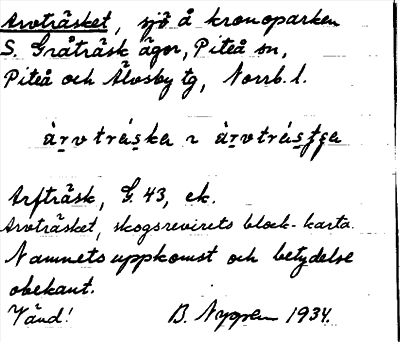 Arvträsket, sjö å kronoparken
S. Gråträsk ägor, Piteå sn,
Piteå och Älvsby tg, Norrb. l.
àrvtráska ~ àrvtrásſſa
Arfträsk, G. 43, ek.
Arvträsket, skogsrevirets block-karta.
Namnets uppkomst och betydelse
obekant.
Vänd! B. Nygren 1934.